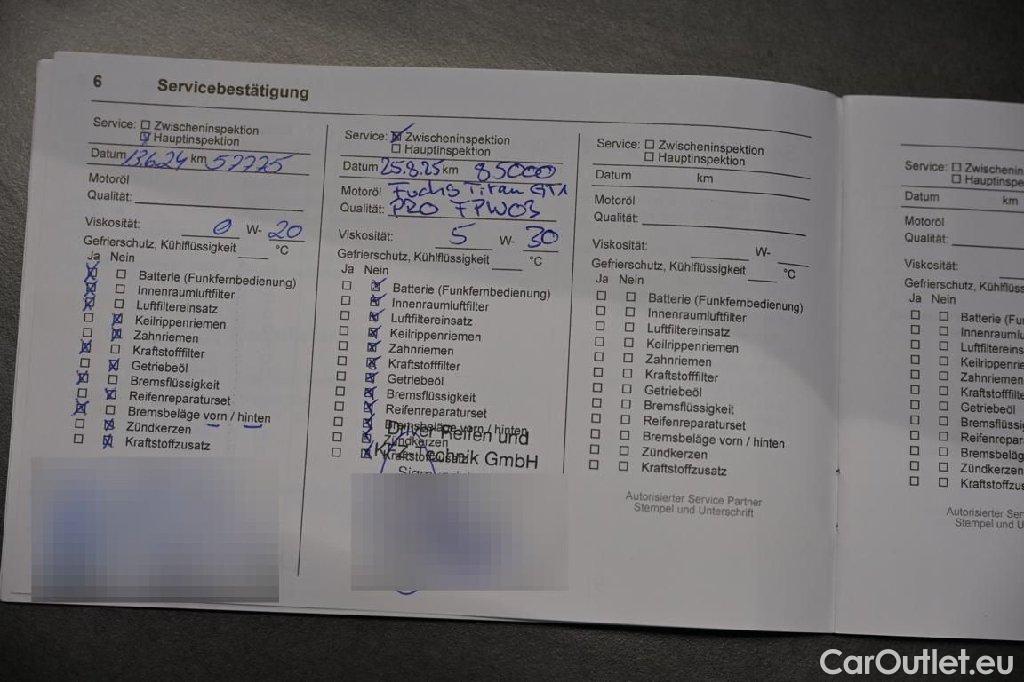 6 Servicebestätigung
Service: Zwischeninspektion
Hauptinspektion
Datum 13.6.24 km 57775
Motoröl
Qualität:
Viskosität: 0 W- 20
Gefrierschutz, Kühlflüssigkeit °C
Ja Nein
Batterie (Funkfernbedienung)
Innenraumluftfilter
Luftfiltereinsatz
Keilrippenriemen
Zahnriemen
Kraftstofffilter
Getriebeöl
Bremsflüssigkeit
Reifenreparaturset
Bremsbeläge vorn / hinten
Zündkerzen
Kraftstoffzusatz
Service: Zwischeninspektion
Hauptinspektion
Datum 25.8.25 km 85000
Motoröl Fuchs Titan GT1
Qualität: PRO
Viskosität: 5 W- 30
Gefrierschutz, Kühlflüssigkeit °C
Ja Nein
Batterie (Funkfernbedienung)
Innenraumluftfilter
Luftfiltereinsatz
Keilrippenriemen
Zahnriemen
Kraftstofffilter
Getriebeöl
Bremsflüssigkeit
Reifenreparaturset
Bremsbeläge vorn / hinten
Driver Reifen und
Zündkerzen
KFZ-Technik GmbH
Kraftstoffzusatz
Service: Zwischeninspektion
Hauptinspektion
Datum km
Motoröl
Qualität:
Viskosität: W- 
Gefrierschutz, Kühlflüssigkeit °C
Ja Nein
Batterie (Funkfernbedienung)
Innenraumluftfilter
Luftfiltereinsatz
Keilrippenriemen
Zahnriemen
Kraftstofffilter
Getriebeöl
Bremsflüssigkeit
Reifenreparaturset
Bremsbeläge vorn / hinten
Zündkerzen
Kraftstoffzusatz
Autorisierter Service Partner
Stempel und Unterschrift
Service: Zwischeninsp
Hauptinspe
Datum km
Motoröl
Qualität:
Viskosität:
Gefrierschutz, Kühlflüss
Ja Nein
Batterie (Fu
Innenraumlu
Luftfilterein
Keilrippenri
Zahnriemen
Kraftstofffilt
Getriebeöl
Bremsflüssi
Reifenrepar
Bremsbeläg
Zündkerzen
Kraftstoffzus
Autorisierter Ser
Stempel und U
CarOutlet.eu